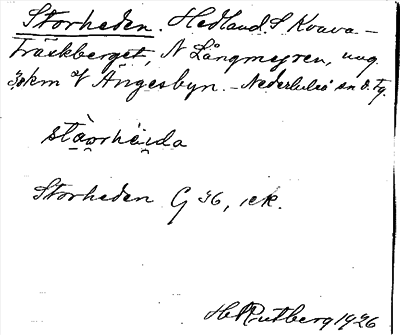 Storheden. Hedland. S Kvava-
träskberget, N Långmyren, ung.
3,0 km V Ängesbyn. - Nederluleå sn ö. Tg.
stàorhèida
Storheden G 36, iek.
H. Rutberg 1926